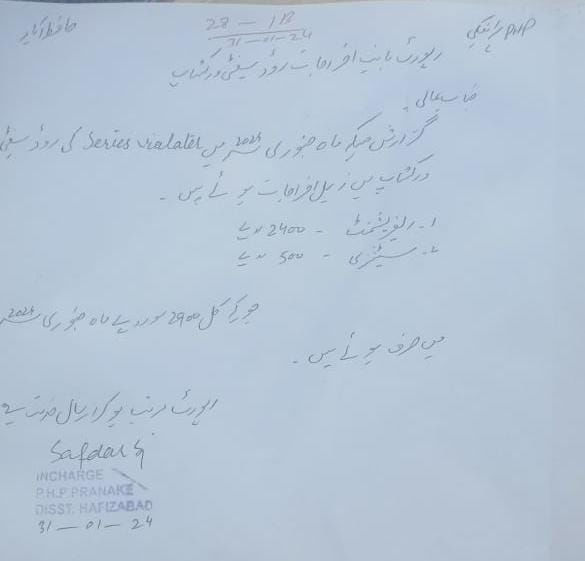 PHP پرانیکے
28 – 1B
31-01-24
حافظ آباد
رپورٹ بابت اخراجات روڈ سیفٹی ورکشاپ
جناب عالی۔
گزارش ہیکہ ماہ جنوری 2024 میں Series vialater کی روڈ سیفٹی
ورکشاپ میں ذیل اخراجات ہوئے ہیں۔
۱۔ ریفریشمنٹ - 2400 روپے
۲۔ سٹیشنری - 500 روپے
جو کہ کل 2900 روپے ماہ جنوری 2024
میں صرف ہوئے ہیں۔
رپورٹ مرتب ہو کر ارسال خدمت ہے
Safdar
INCHARGE
P.H.P. PRANAKE
DISST. HAFIZABAD
31-01-24